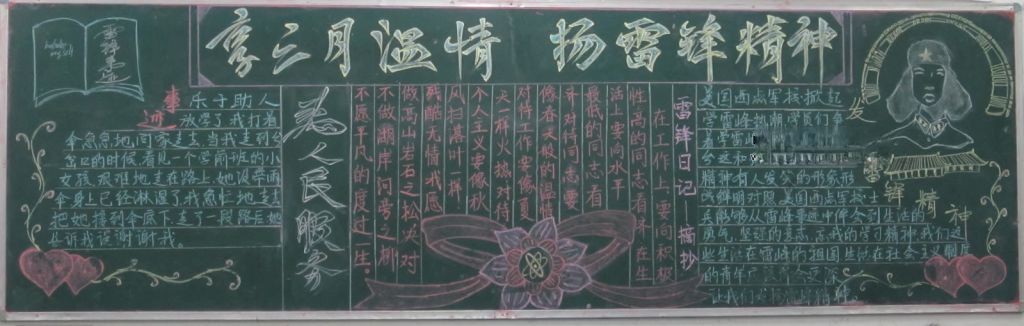 享三月温情 扬雷锋精神
雷锋事迹
事迹
乐于助人
放学了我打着
伞急急地回家走去,当我走到
的时候,看见一个学前班的小
女孩,艰难地走在路上,她没带雨
伞身上已经淋湿了我急忙地走去
把她接到伞底下走了一段路后她
告诉我说谢谢我。
为人民服务
雷锋日记—摘抄
在工作上要向积极
性高的同志看齐在生
活上要向水平
最低的同志看
齐对待同志要
像春天般的温暖
对待工作要像夏
天一样火热对待
个人主义要像秋
风扫落叶一样
残酷无情我愿
做高山岩石之松决对
不做湖岸河旁之柳
不愿平凡的度过一生。
美国西点军校掀起
学雷锋热潮,学员们争
学雷
精神有人发公的形象形
成鲜明对照,美国西点军校士
兵能够从雷锋事迹中体会到生活的
勇气,坚强的意志,忘我的学习精神,我们这
些生活在雷锋的祖国生活在社会主义制度
的青年
让我们
发
雷锋精神